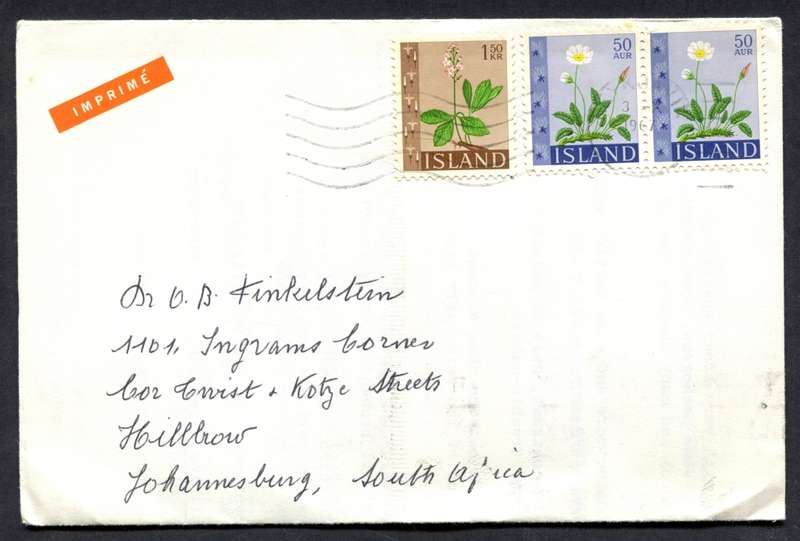 IMPRIMÉ
1.50
KR
ÍSLAND
50
AUR
ÍSLAND
50
AUR
ÍSLAND
3
Dr O. B. Finkelstein
1101, Ingrams Corner
Cor Twist + Kotze Streets
Hillbrow
Johannesburg, South Africa